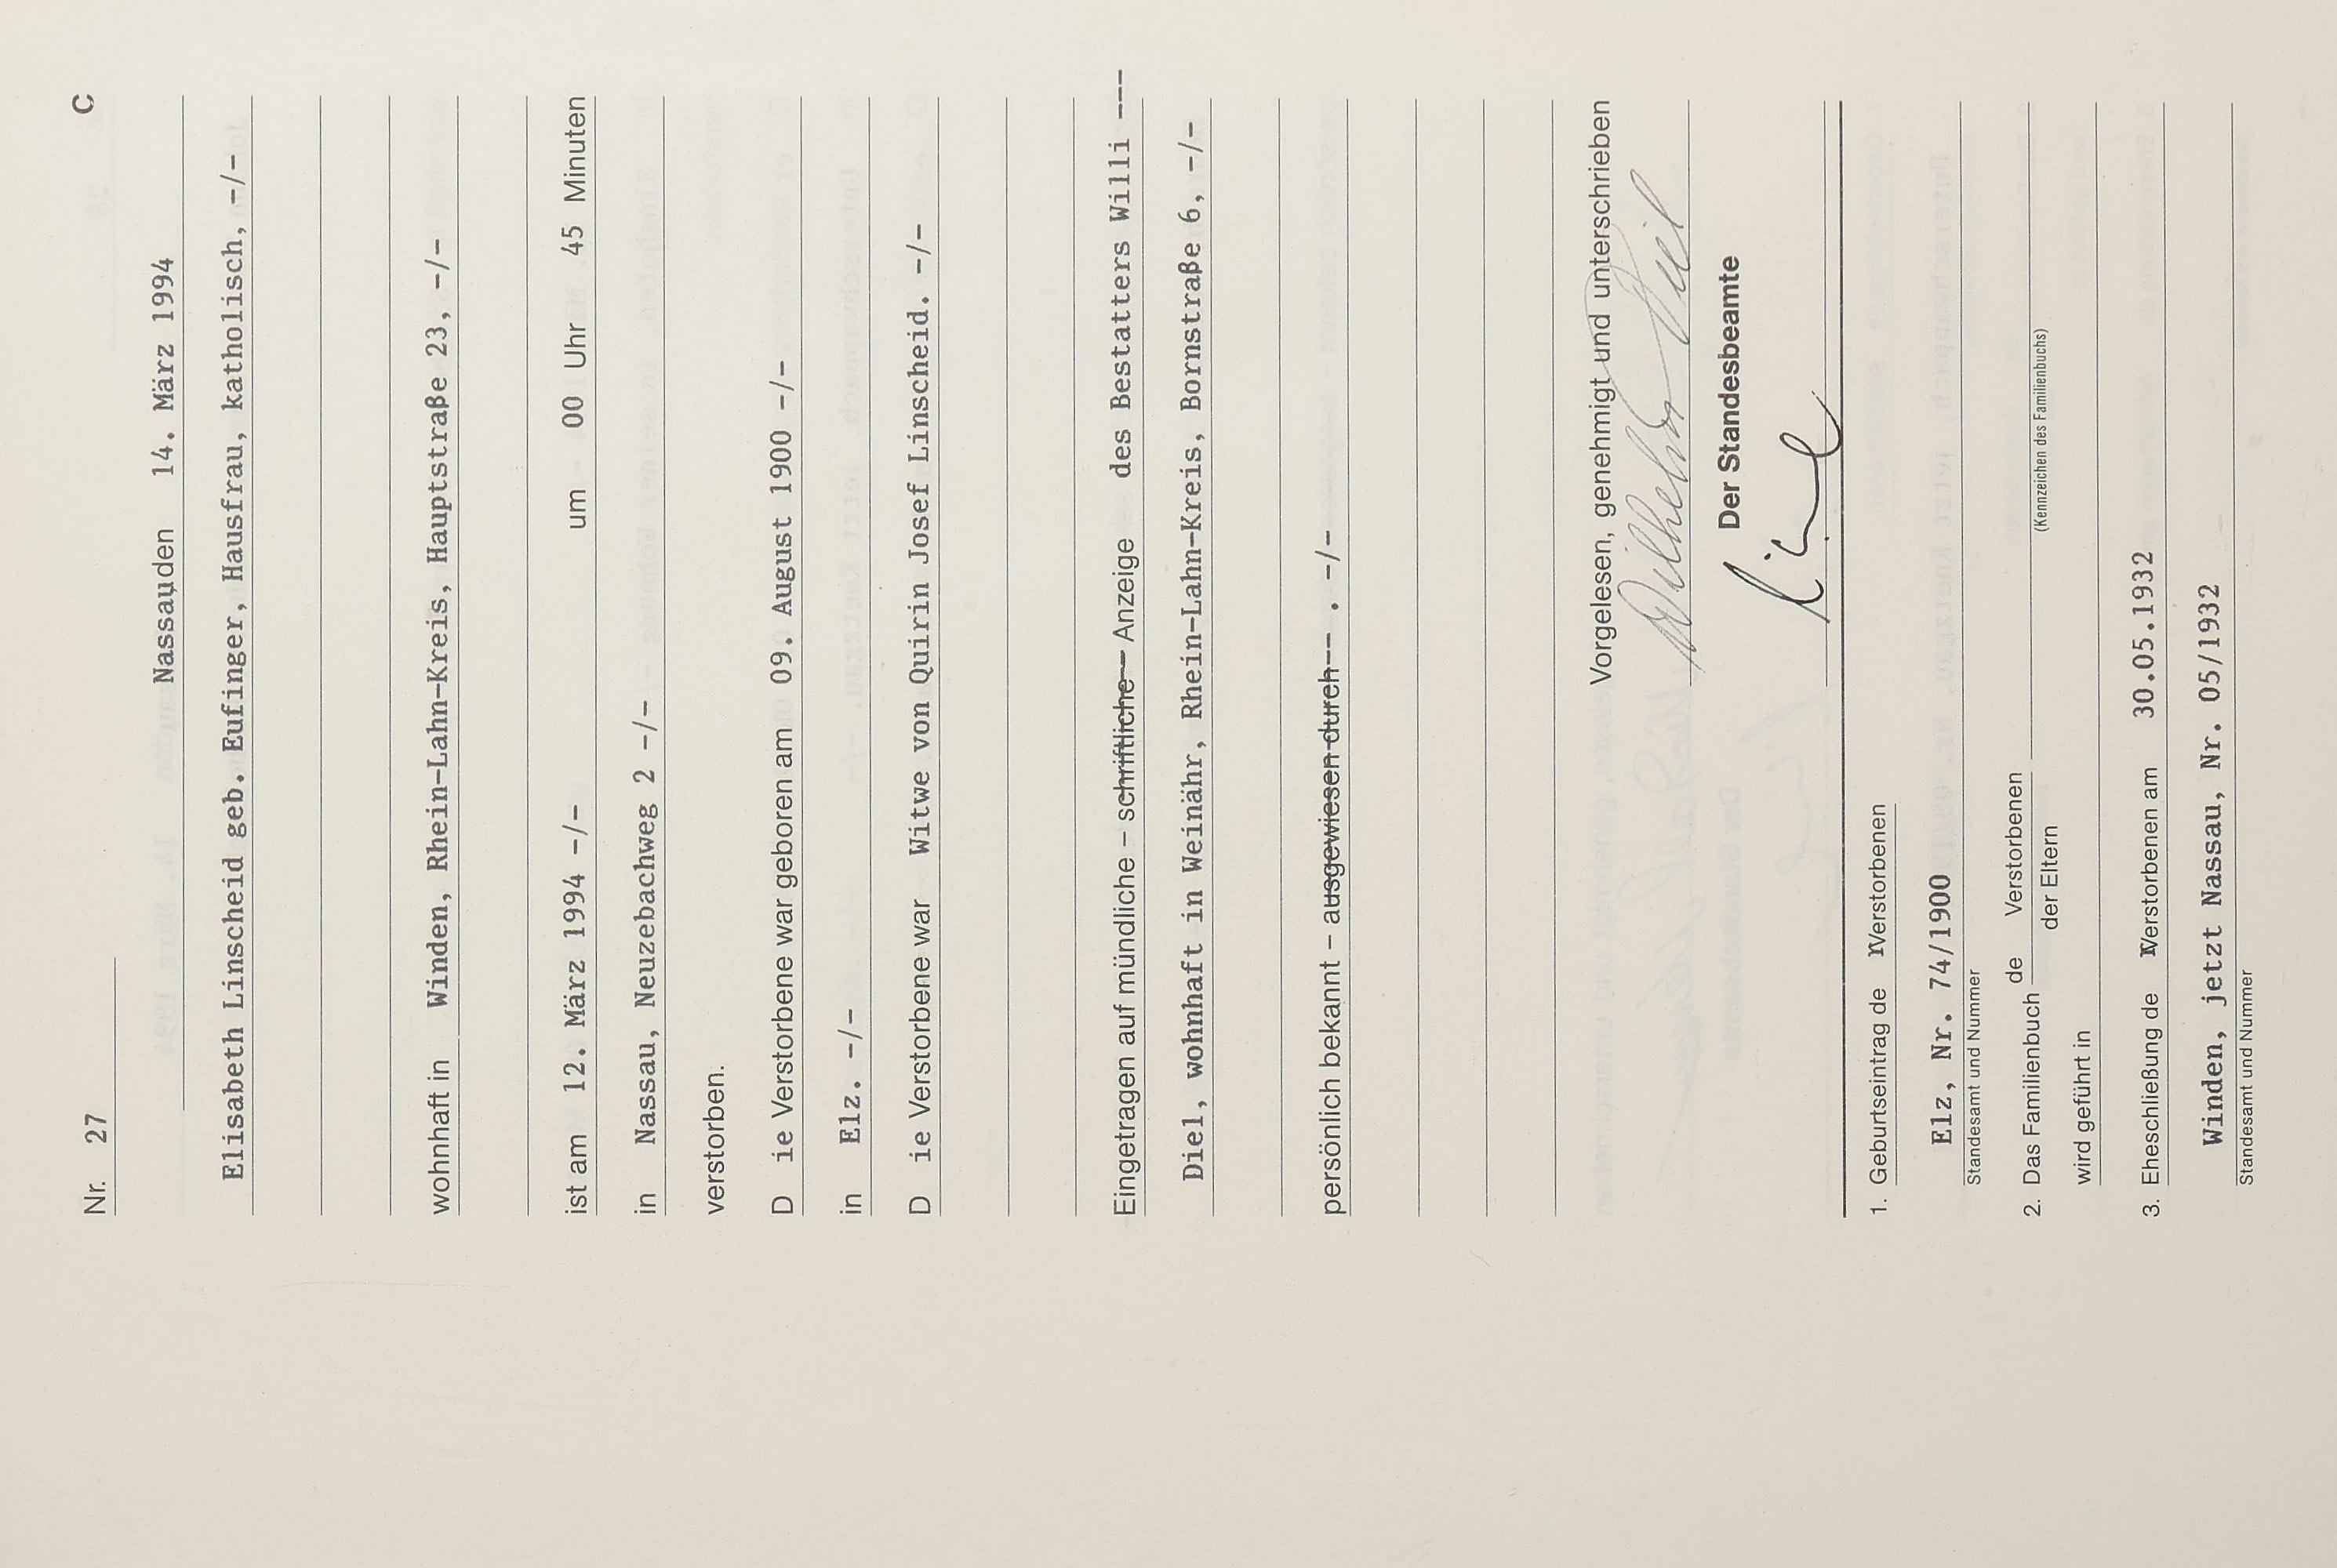 Nr. 27 C
Nassau, den 14. März 1994
Elisabeth Linscheid geb. Eufinger, Hausfrau, katholisch, -/-
wohnhaft in Winden, Rhein-Lahn-Kreis, Hauptstraße 23, -/-
ist am 12. März 1994 -/- um 00 Uhr 45 Minuten
in Nassau, Neuzebachweg 2 -/-
verstorben.
D ie Verstorbene war geboren am 09. August 1900 -/-
in Elz. -/-
D ie Verstorbene war Witwe von Quirin Josef Linscheid. -/-
Eingetragen auf mündliche - schriftliche - Anzeige des Bestatters Willi ---
Diel, wohnhaft in Weinähr, Rhein-Lahn-Kreis, Bornstraße 6, -/-
persönlich bekannt - ausgewiesen durch --. -/-
Vorgelesen, genehmigt und unterschrieben
Der Standesbeamte
1. Geburtseintrag de r Verstorbenen
Elz, Nr. 74/1900
Standesamt und Nummer
2. Das Familienbuch de Verstorbenen
der Eltern
(Kennzeichen des Familienbuchs)
wird geführt in
3. Eheschließung de r Verstorbenen am 30.05.1932
Winden, jetzt Nassau, Nr. 05/1932
Standesamt und Nummer